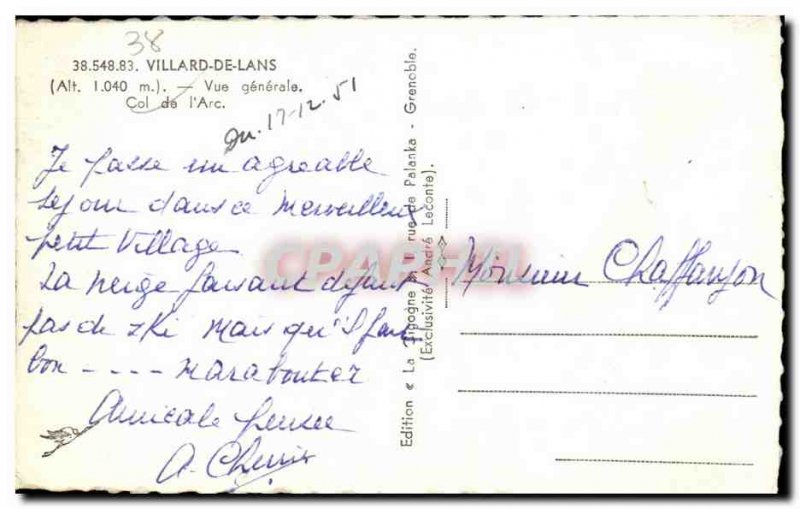 38
38.548.83. VILLARD-DE-LANS
(Alt. 1.040 m.). — Vue générale.
Col de l'Arc.
Du. 17-12.51
Je passe un agreable
sejour dans ce merveilleux
petit village
La neige faisant defaut
pas de ski mais qu'il fait
bon ---- marabouter
Amicale pensée
A.
Edition « La Cigogne rue de Palanka - Grenoble.
(Exclusivité André Leconte).
Monsieur Chaffanjon
CPAPHIL